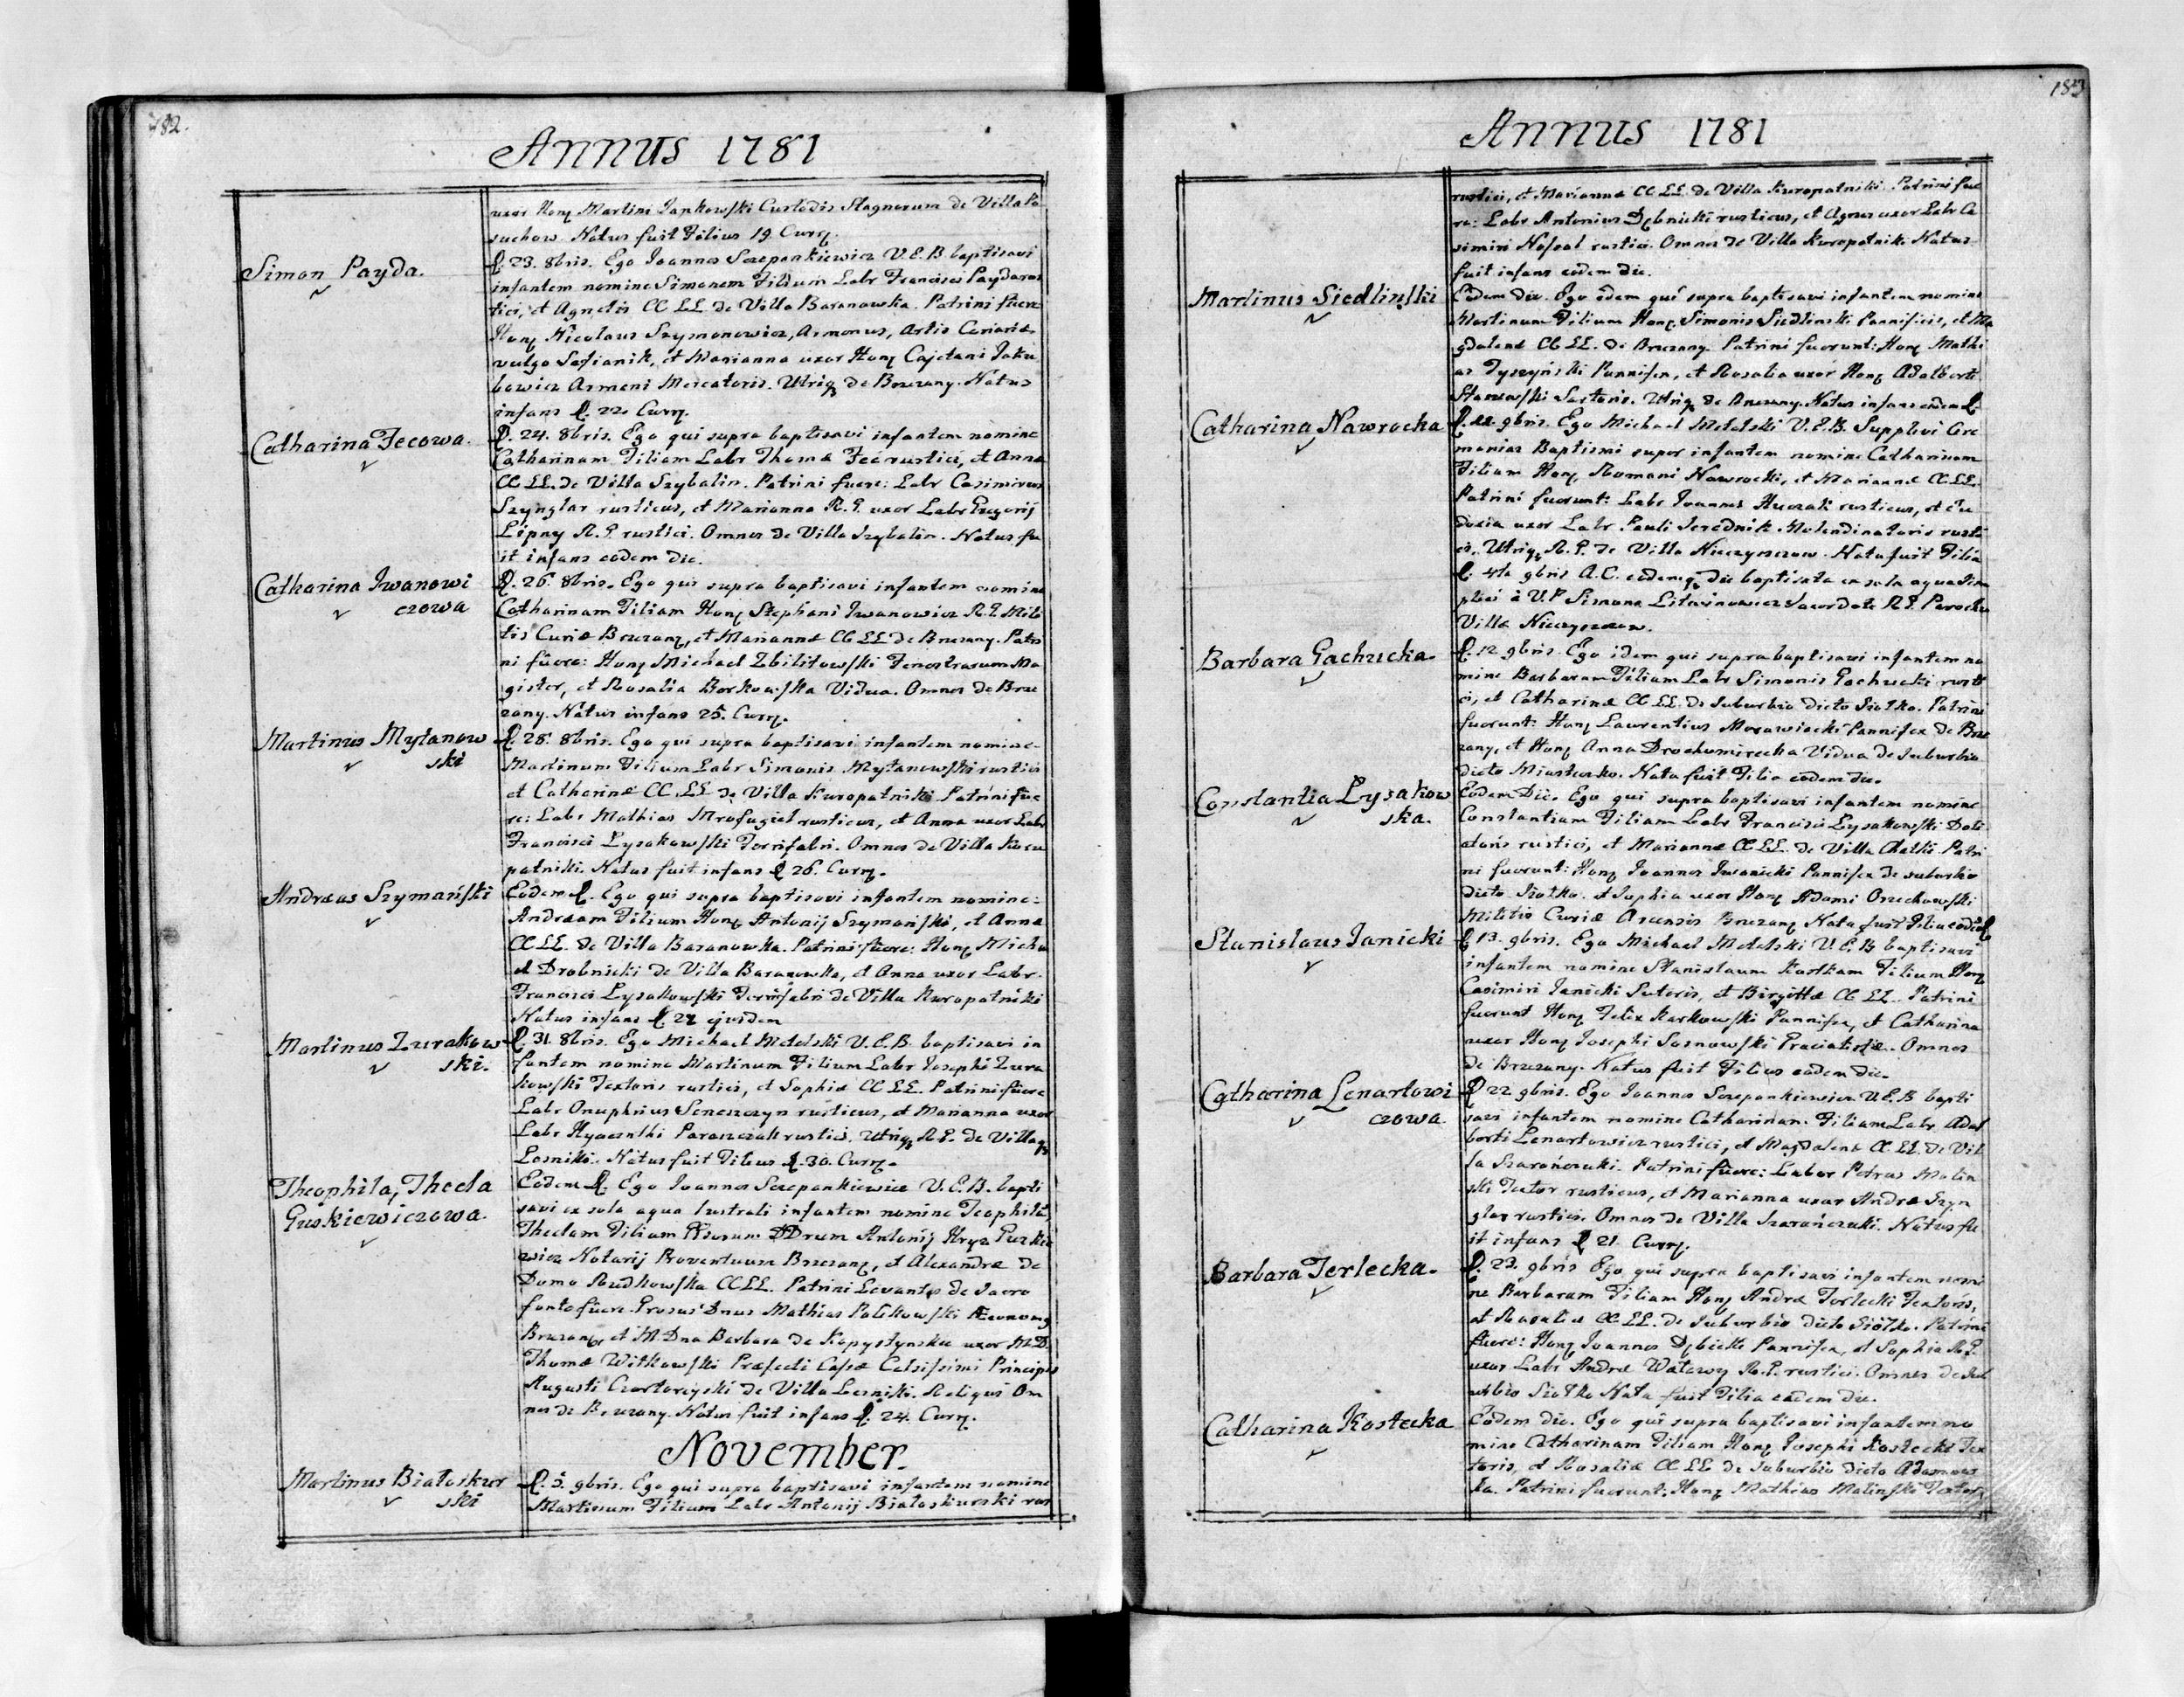 182.
Annus 1781
uxor Honẹ Martini Jankowski Custodis Stagnorum de Villa Po
suchow. Natus fuit Filius 19. Curr.
Simon Payda.
D. 23. 8bris. Ego Joannes Szczepankiewicz V.E.B. baptisavi
infantem nomine Simonem Filium Labr Francisci Payda rus
tici, et Agnetis CC LL de Villa Baranowka. Patrini fuere
Hon. Nicolaus Szymonowicz, Armenus, Artis Coriariæ
vulgo Safianik, et Marianna uxor Hon. Cajetani Jaku
bowicz Armeni Mercatoris. Utriq de Brzezany. Natus
infans D. 22. Curr.
Catharina Fecowa.
D. 24. 8bris. Ego qui supra baptisavi infantem nomine
Catharinam Filiam Labr Thomæ Fec rustici, et Annæ
CC LL. de Villa Szybalin. Patrini fuere: Labr Casimirus
Szynglar rusticus, et Marianna R.G. uxor Labr Gregorij
Lipny R.G. rustici. Omnes de Villa Szybalin. Natus fu
it infans eodem die.
Catharina Iwanowi
czowa
D. 26. 8bris. Ego qui supra baptisavi infantem nomine
Catharinam Filiam Hon. Stephani Iwanowicz R.G. Mili
tis Curiæ Brzezan, et Mariannæ CC LL de Brzezany. Patri
ni fuere: Hon. Michael Zbilitowski Fenestrarum Ma
gister, et Rosalia Borkowska Vidua. Omnes de Brze
zany. Natus infans 25. Curr.
Martinus Mytanow
ski
D. 28. 8bris. Ego qui supra baptisavi infantem nomine
Martinum Filium Labr Simonis Mytanowski rustici
et Catharinæ CC LL de Villa Kuropatniki Patrini fue
re: Labr Mathias Mrofugiel rusticus, et Anna uxor Labr
Francisci Lysakowski Ferrifabri. Omnes de Villa Kuro
patniki. Natus fuit infans D 26. Curr.
Andreas Szymański
Eodem D. Ego qui supra baptisavi infantem nomine
Andream Filium Hon. Antonij Szymański, et Annæ
CC LL. de Villa Baranowka. Patrini fuere: Hon. Micha
el Drobnicki de Villa Baranowka, et Anna uxor Labr.
Francisci Lysakowski Ferrifabri de Villa Kuropatniki
Natus infans D 27 ejusdem
Martinus Zurakow
ski.
D. 31. 8bris. Ego Michael Metelski V.E.B. baptisavi in
fantem nomine Martinum Filium Labr Josephi Zura
kowski Textoris rustici, et Sophiæ CC LL. Patrini fuere
Labr Onuphrius Seneszczyn rusticus, et Marianna uxor
Labr Hyacinthi Paraszczak rustici. Utriq R.G. de Villa
Lesniki. Natus fuit Filius D. 30. Curr.
Theophila, Thecla
Guskiewiczowa.
Eodem D. Ego Joannes Szczepankiewicz V.E.B. bapti
savi ex sola aqua lustrali infantem nomine Teophilã,
Theclam Filiam DDrum Antonij Hryc Guzkie
wicz Notarij Proventuum Brzezan, et Alexandræ de
Domo Rudkowska CC LL. Patrini Levantes de Sacro
fonte fuere Dnus Mathias Polikowski Æconomus
Brzezan, et M. Dna Barbara de Kopystynskie uxor M.D.
Thomæ Witkowski Præfecti Capæ Celsissimi Principis
Augusti Czartoryski de Villa Lesniki. Reliqui Om
nes de Brzezany. Natus fuit infans D. 24. Curr.
November.
Martinus Białoskur
ski
D. 5. 9bris. Ego qui supra baptisavi infantem nomine
Martinum Filium Labr Antonij Białoskurski rus
183
Annus 1781
rustici, et Mariannæ CC LL. de Villa Kuropatniki. Patrini fue
re: Labr Antonius Dębnicki rusticus, et Agnes uxor Labr Ca
simiri Nosal rustici. Omnes de Villa Kuropatniki Natus
fuit infans eodem die.
Martinus Siedlinski
Eodem die. Ego idem qui supra baptisavi infantem nomine
Martinum Filium Hon. Simonis Siedlinski Pannificis, et Ma
gdalenæ CC LL. de Brzezany. Patrini fuerunt: Hon. Mathi
as Tyszyński Pannifex, et Rosalia uxor Hon. Adalberti
Starzewski Sartoris. Utriq de Brzezany. Natus infans eodem D.
Catharina Nawrocka
D. 11. 9bris. Ego Michael Metelski V.E.B. Supplevi Cere
monias Baptismi super infantem nomine Catharinam
Filiam Hon. Romani Nawrocki, et Mariannæ CC LL.
Patrini fuerunt: Labr Joannes Huczak rusticus, et Eu
doxia uxor Labr. Pauli Serednik Molendinatoris rusti
ci. Utriq R.G. de Villa Hieczyszczow. Nata fuit Filia
D. 4ta 9bris A.C. eademq die baptisata ex sola aqua sim
plici à V.P. Simone Litwinowicz Sacerdote R.G. Parocho
Villæ Hieczyszczow.
Barbara Gachucka.
D. 12 9bris. Ego idem qui supra baptisavi infantem no
mine Barbaram Filiam Labr Simonis Gachucki rusti
ci, et Catharinæ CC LL. de Suburbio dicto Siołko. Patrini
fuerunt: Hon. Laurentius Morawiecki Pannifex de Brze
zany, et Hon. Anna Drochomirecka Vidua de Suburbio
dicto Miasteczko. Nata fuit Filia eodem die.
Constantia Lysakow
ska.
Eodem Die. Ego qui supra baptisavi infantem nomine
Constantiam Filiam Labr Francisci Lysakowski Doli
atoris rustici, et Mariannæ CC LL. de Villa Chatki. Patri
ni fuerunt: Hon. Joannes Iwanicki Pannifex de suburbio
dicto Siołko. et Sophia uxor Hon. Adami Orzechowski
Militis Curiæ Arcensis Brzezan Nata fuit Filia eodem D
Stanislaus Janicki
D 13. 9bris. Ego Michael Metelski V.E.B. baptisavi
infantem nomine Stanislaum Kostkam Filium Hon.
Casimiri Janicki Sutoris, et Birgittæ CC LL. Patrini
fuerunt Hon. Felix Karkowski Pannifex, et Catharina
uxor Hon. Josephi Sosnowski Praxiatistæ. Omnes
de Brzezany. Natus fuit Filius eodem die.
Catharina Lenartowi
czowa.
D 22 9bris. Ego Joannes Szczepankiewicz V.E.B. bapti
savi infantem nomine Catharinam Filiam Labr Adal
berti Lenartowicz rustici, et Magdalenæ CC LL. de Vil
la Szaranczuki. Patrini fuere: Labor Petrus Molin
ski Textor rusticus, et Marianna uxor Andreæ Szyn
glar rustici. Omnes de Villa Szarańczuki. Natus fu
it infans D 21. Curr.
Barbara Terlecka.
D. 23. 9bris Ego qui supra baptisavi infantem nomi
ne Barbaram Filiam Hon. Andreæ Terlecki Textoris,
et Rosaliæ CC LL. de Suburbio dicto Siółko. Patrini
fuere: Hon. Joannes Dębicki Pannifex, et Sophia R.G.
uxor Labr Andreæ Watowy R.G. rustici. Omnes de Sub
urbio Siołko Nata fuit Filia eadem die.
Catharina Kostecka
Eodem die. Ego qui supra baptisavi infantem no
mine Catharinam Filiam Hon. Josephi Kostecki Tex
toris, et Rosaliæ CC LL de Suburbio dicto Adamow
ka. Patrini fuerunt. Hon. Mathias Malinski Textor